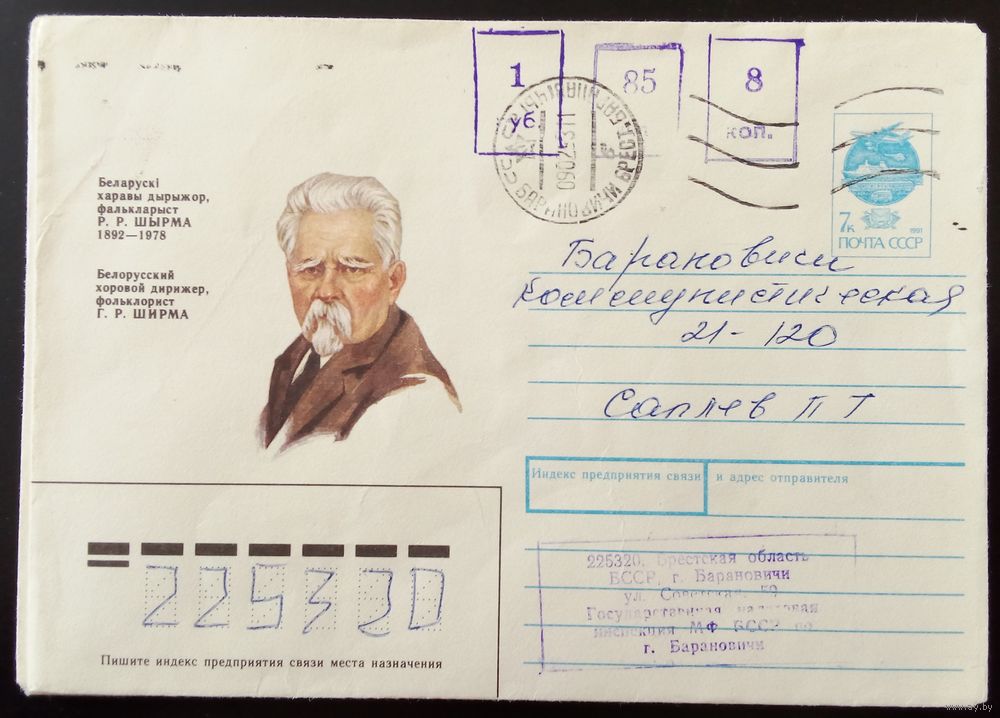 1
уб
85
8
коп.
7к
1991
ПОЧТА СССР
Беларускі
харавы дырыжор,
фалькларыст
Р. Р. ШЫРМА
1892—1978
Белорусский
хоровой дирижер,
фольклорист
Г. Р. ШИРМА
Барановичи
Коммунистическая
21-120
Саплев П Т
Индекс предприятия связи и адрес отправителя
225320, Брестская область
БССР, г. Барановичи
ул. Советская, 59
Государственная налоговая
инспекция МФ БССР по
г. Барановичи
225320
Пишите индекс предприятия связи места назначения
www.ay.by